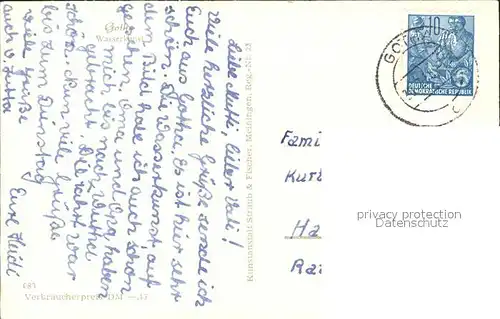 Gotha
Wasserkunst
Liebe Mutti, lieber Vati!
Viele herzliche Grüße sende ich
Euch aus Gotha. Es ist hier sehr
schön. Die Wasserkunst, auf
dem Bild habe ich auch schon
gesehen. Oma und Opa haben
mich bis nach Wutha
gebracht. Die Fahrt war
schön. Nun viele Grüße
bis zum Dienstag
viele Grüße Eure Heidi
auch v. Jutta
Kunstanstalt Straub & Fischer, Meiningen, Reg.-Nr. 22
Verbraucherpreis DM
10
DEUTSCHE
DEMOKRATISCHE REPUBLIK
GOTHA
Fami
Kurt
Ha
Rai
privacy protection
watermark